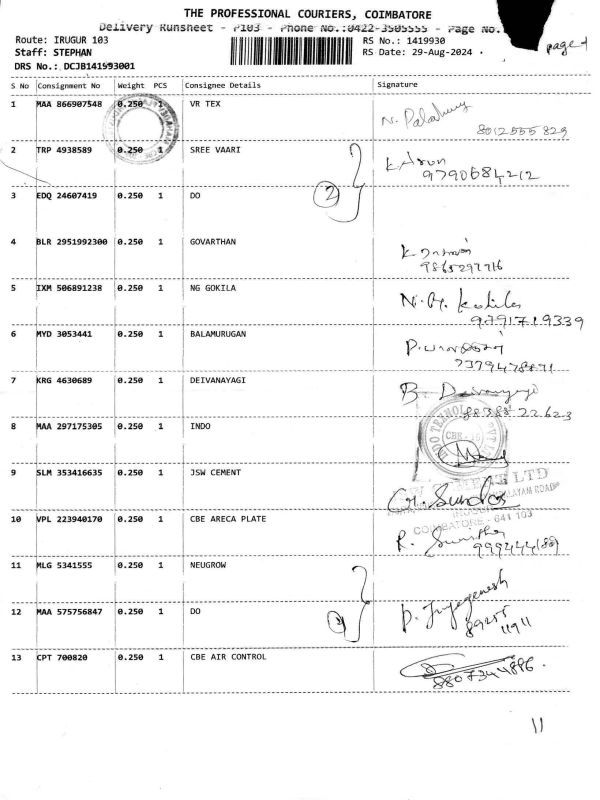 THE PROFESSIONAL COURIERS, COIMBATORE
Delivery Runsheet - P103 - Phone No.:0422-3505555 - Page No.
Route: IRUGUR 103
RS No.: 1419930
page 1
Staff: STEPHAN
RS Date: 29-Aug-2024
DRS No.: DCJB141993001
S No Consignment No Weight PCS Consignee Details Signature
1 MAA 866907548 0.250 1 VR TEX
8012555 829
2 TRP 4938589 0.250 1 SREE VAARI K. Arun
9790684212
3 EDQ 24607419 0.250 1 DO 2
4 BLR 2951992300 0.250 1 GOVARTHAN
9865297716
5 IXM 506891238 0.250 1 NG GOKILA
9791719339
6 MYD 3053441 0.250 1 BALAMURUGAN
7 KRG 4630689 0.250 1 DEIVANAYAGI
88388 22623
8 MAA 297175305 0.250 1 INDO
9 SLM 353416635 0.250 1 JSW CEMENT
COIMBATORE - 641 103
10 VPL 223940170 0.250 1 CBE ARECA PLATE
11 MLG 5341555 0.250 1 NEUGROW
12 MAA 575756847 0.250 1 DO
13 CPT 700820 0.250 1 CBE AIR CONTROL
8807344886.
11